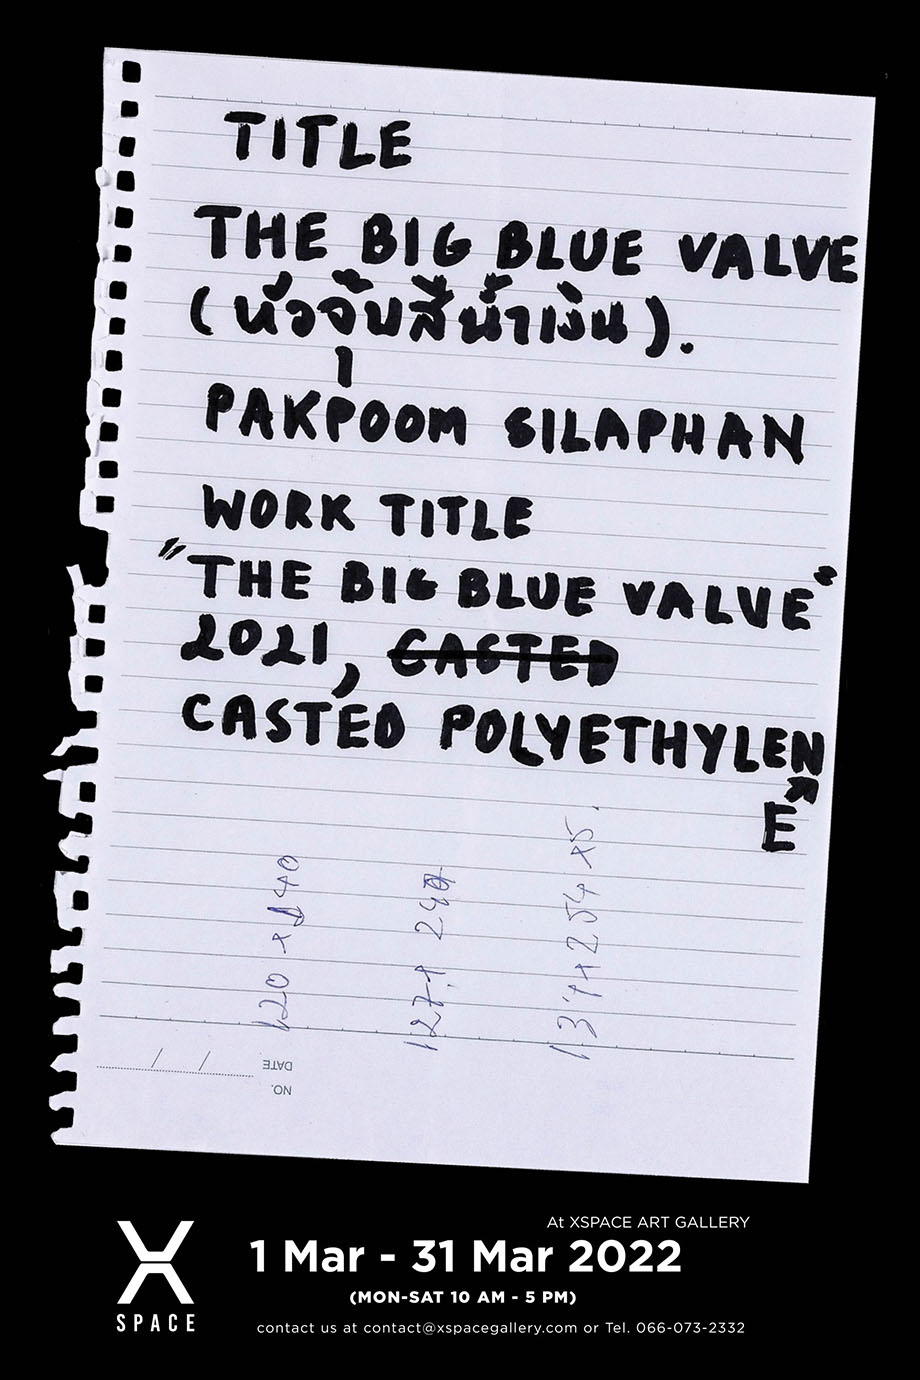 TITLE
THE BIG BLUE VALVE
(หัวจุ๊บสีน้ำเงิน).
PAKPOOM SILAPHAN
WORK TITLE
"THE BIG BLUE VALVE"
2021, CASTED
CASTED POLYETHYLEN
E
120 x 140
DATE / /
NO.
At XSPACE ART GALLERY
1 Mar - 31 Mar 2022
(MON-SAT 10 AM - 5 PM)
contact us at contact@xspacegallery.com or Tel. 066-073-2332
X
SPACE